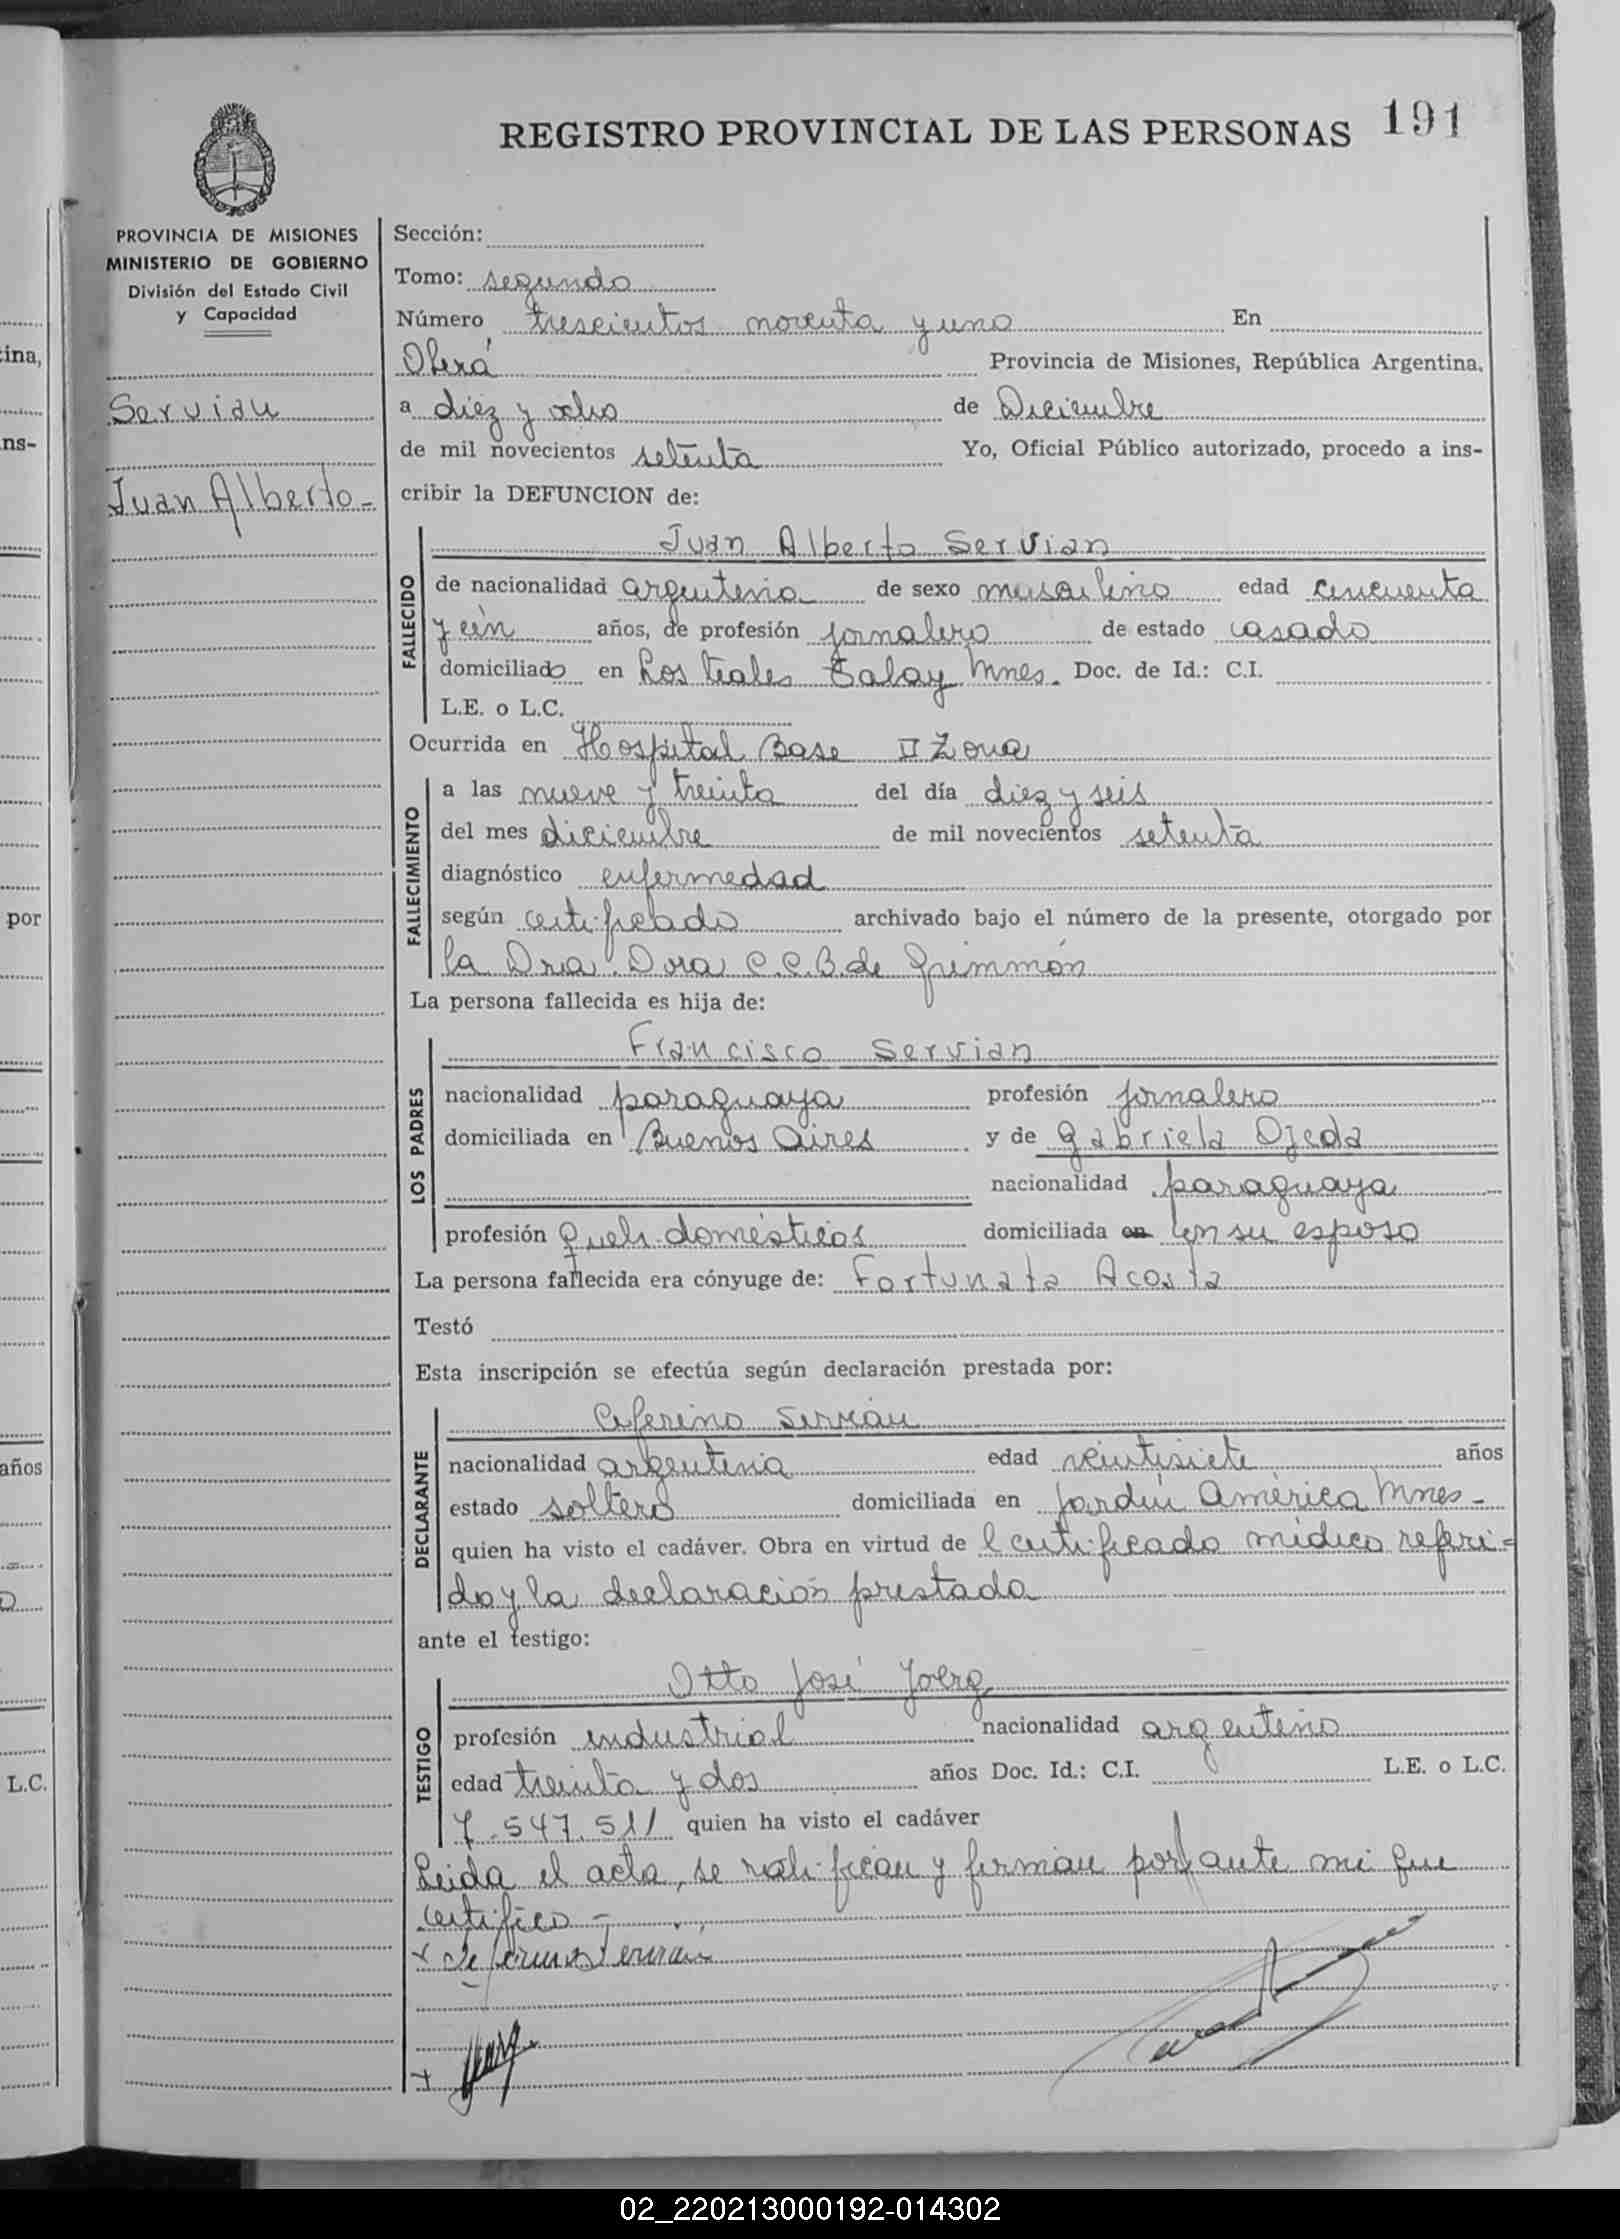 REGISTRO PROVINCIAL DE LAS PERSONAS 191
PROVINCIA DE MISIONES
MINISTERIO DE GOBIERNO
División del Estado Civil
y Capacidad
Servian
Juan Alberto -
Sección:
Tomo: segundo
Número trescientos noventa y uno En
Oberá Provincia de Misiones, República Argentina,
a diez y ocho de Diciembre
de mil novecientos setenta Yo, Oficial Público autorizado, procedo a ins-
cribir la DEFUNCION de:
FALLECIDO
Juan Alberto Servian
de nacionalidad argentina de sexo masculino edad cincuenta
y un años, de profesión jornalero de estado casado
domiciliado en Los teales Mnes. Doc. de Id.: C.I.
L.E. o L.C.
Ocurrida en Hospital Base II Zona
FALLECIMIENTO
a las nueve y treinta del día diez y seis
del mes diciembre de mil novecientos setenta
diagnóstico enfermedad
según certificado archivado bajo el número de la presente, otorgado por
la Dra. Dora C.C.B. de Grimmon
La persona fallecida es hija de:
LOS PADRES
Francisco Servian
nacionalidad paraguaya profesión jornalero
domiciliada en Buenos Aires y de Gabriela Ojeda
nacionalidad paraguaya
profesión Queh. domésticos domiciliada en con su esposo
La persona fallecida era cónyuge de: Fortunata Acosta
Testó
Esta inscripción se efectúa según declaración prestada por:
DECLARANTE
Ceferino Servian
nacionalidad argentina edad veintisiete años
estado soltero domiciliada en Jardin América Mnes -
quien ha visto el cadáver. Obra en virtud de l certificado médico referi-
do y la declaración prestada
ante el testigo:
TESTIGO
Otto José Joerg
profesión industrial nacionalidad argentino
edad treinta y dos años Doc. Id.: C.I. L.E. o L.C.
7.547.511 quien ha visto el cadáver
Leida el acta, se ratifican y firman por ante mi que
certifico -
x
x
ina,
ns-
por
años
L.C.
02_220213000192-014302